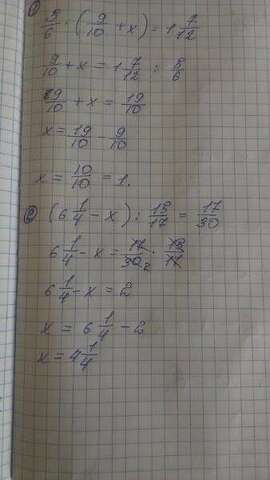 ① 5/6 · (9/10 + x) = 1 7/12
9/10 + x = 1 7/12 : 5/6
9/10 + x = 19/10
x = 19/10 - 9/10
x = 10/10 = 1.
② (6 1/4 - x) : 15/17 = 17/30
6 1/4 - x = 17/30 2 · 15/17
6 1/4 - x = 2
x = 6 1/4 - 2
x = 4 1/4